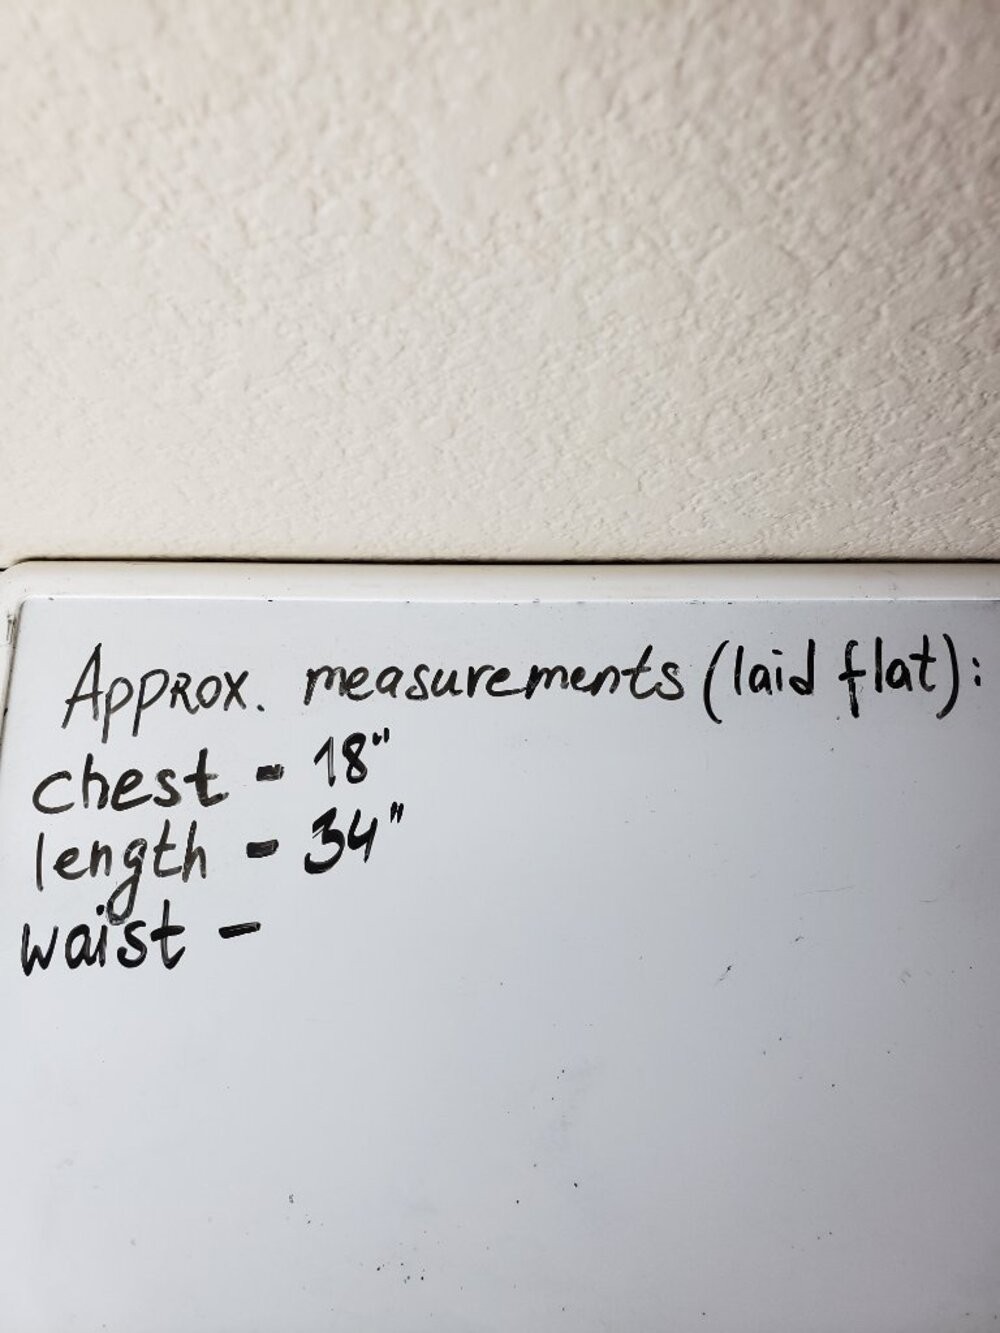 Approx. measurements (laid flat):
chest - 18"
length - 34"
waist -